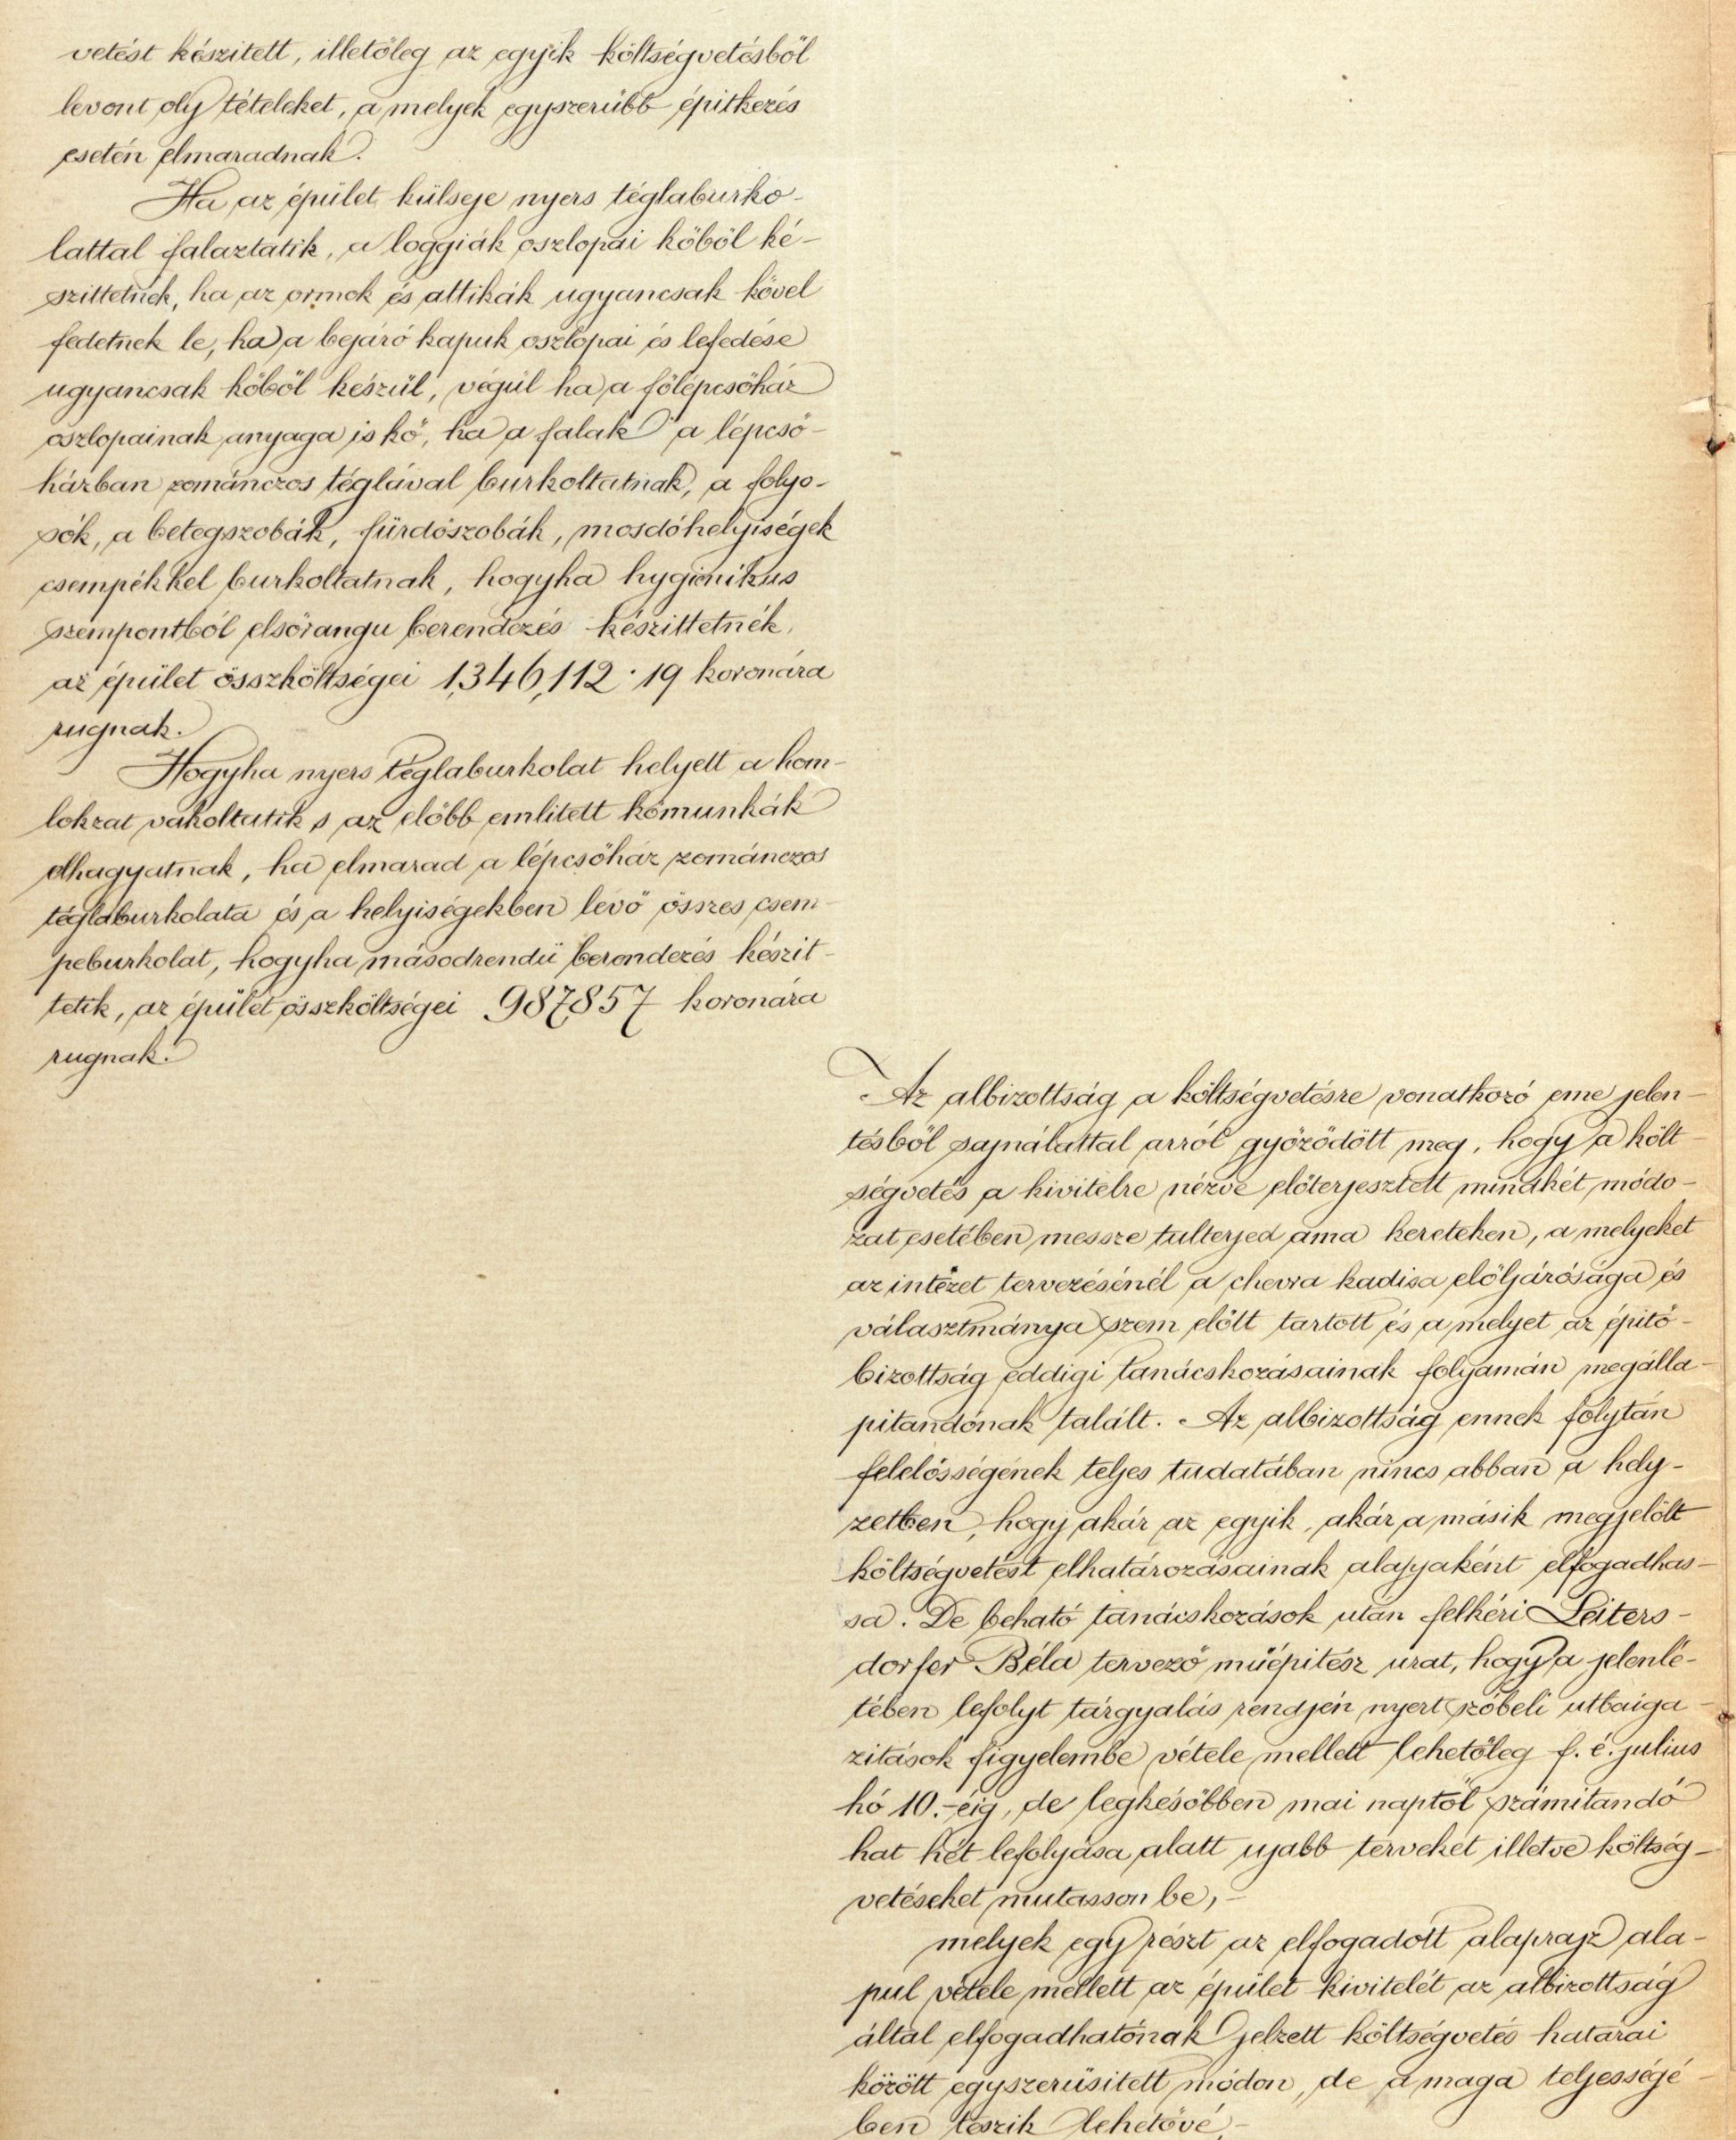 vetést készitett, illetőleg az egyik költségvetésből
levont oly tételeket, a melyek egyszerübb épitkezés
esetén elmaradnak.
Ha az épület külseje nyers téglaburko-
lattal falaztatik, a loggiák oszlopai kőből ké-
szittetnek, ha az ormok és attikák ugyancsak kővel
fedetnek le, ha a bejáró kapuk oszlopai és lefedése
ugyancsak kőből készül, végül ha a főlépcsőház
oszlopainak anyaga is kő, ha a falak a lépcső-
házban zománczos téglával burkoltatnak, a folyo-
sók, a betegszobák, fürdőszobák, mosdóhelyiségek
csempékkel burkoltatnak, hogyha hygienikus
szempontból elsőrangu berendezés készittetnék,
az épület összköltségei 1,346,112·19 koronára
rugnak.
Hogyha nyers téglaburkolat helyett a hom-
lokzat vakoltatik s az előbb emlitett kőmunkák
elhagyatnak, ha elmarad a lépcsőház zománczos
téglaburkolata és a helyiségekben lévő összes csem-
peburkolat, hogyha másodrendü berendezés készit-
tetik, az épület összköltségei 987,857 koronára
rugnak.
Az albizottság a költségvetésre vonatkozó eme jelen-
tésből sajnálattal arról győződött meg, hogy a költ-
ségvetés a kivitelre nézve előterjesztett mindkét módo-
zat esetében messze tulterjed ama kereteken, a melyeket
az intézet tervezésénél a chevra kadisa elöljárósága és
választmánya szem előtt tartott és a melyet az épitő-
bizottság eddigi tanácskozásainak folyamán megálla-
pitandónak talált. Az albizottság ennek folytán
felelősségének teljes tudatában nincs abban a hely-
zetben, hogy akár az egyik, akár a másik megjelölt
költségvetést elhatározásainak alapjaként elfogadhas-
sa. De beható tanácskozások után felkéri Leiters-
dorfer Béla tervező müépitész urat, hogy a jelenlé-
tében lefolyt tárgyalás rendjén nyert szóbeli utbaiga-
zitások figyelembe vétele mellett lehetőleg f. é. julius
hó 10.-éig, de legkésőbben mai naptól számitandó
hat hét lefolyása alatt ujabb terveket illetve költség-
vetéseket mutasson be,-
melyek egy részt az elfogadott alaprajz ala-
pul vétele mellett az épület kivitelét az albizottság
által elfogadhatónak jelzett költségvetés határai
között egyszerüsitett módon, de a maga teljességé-
ben teszik lehetővé,-